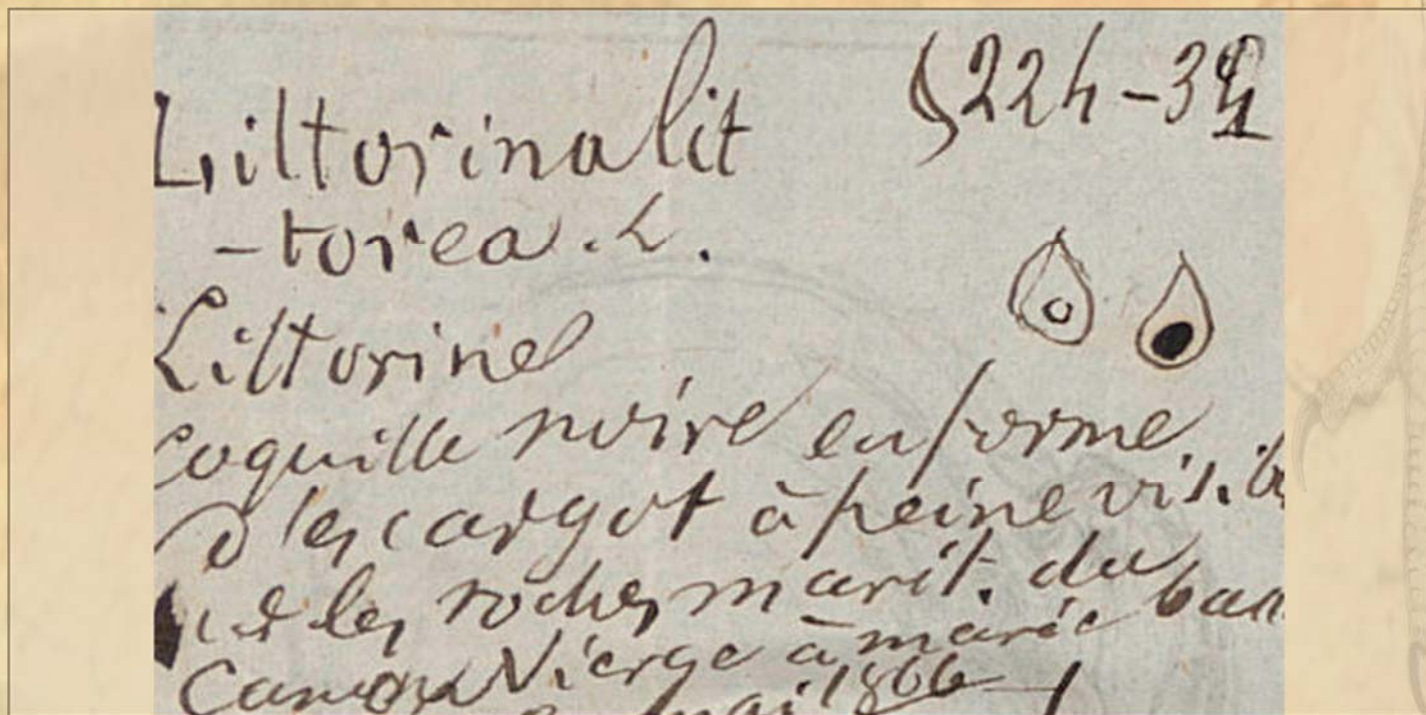 Littorina lit
§224-34
-torea. L.
Littorine
coquille noire en forme
d'escargot à peine visib
les roches marit. du
Canon Vierge à marée bass
mai 1866